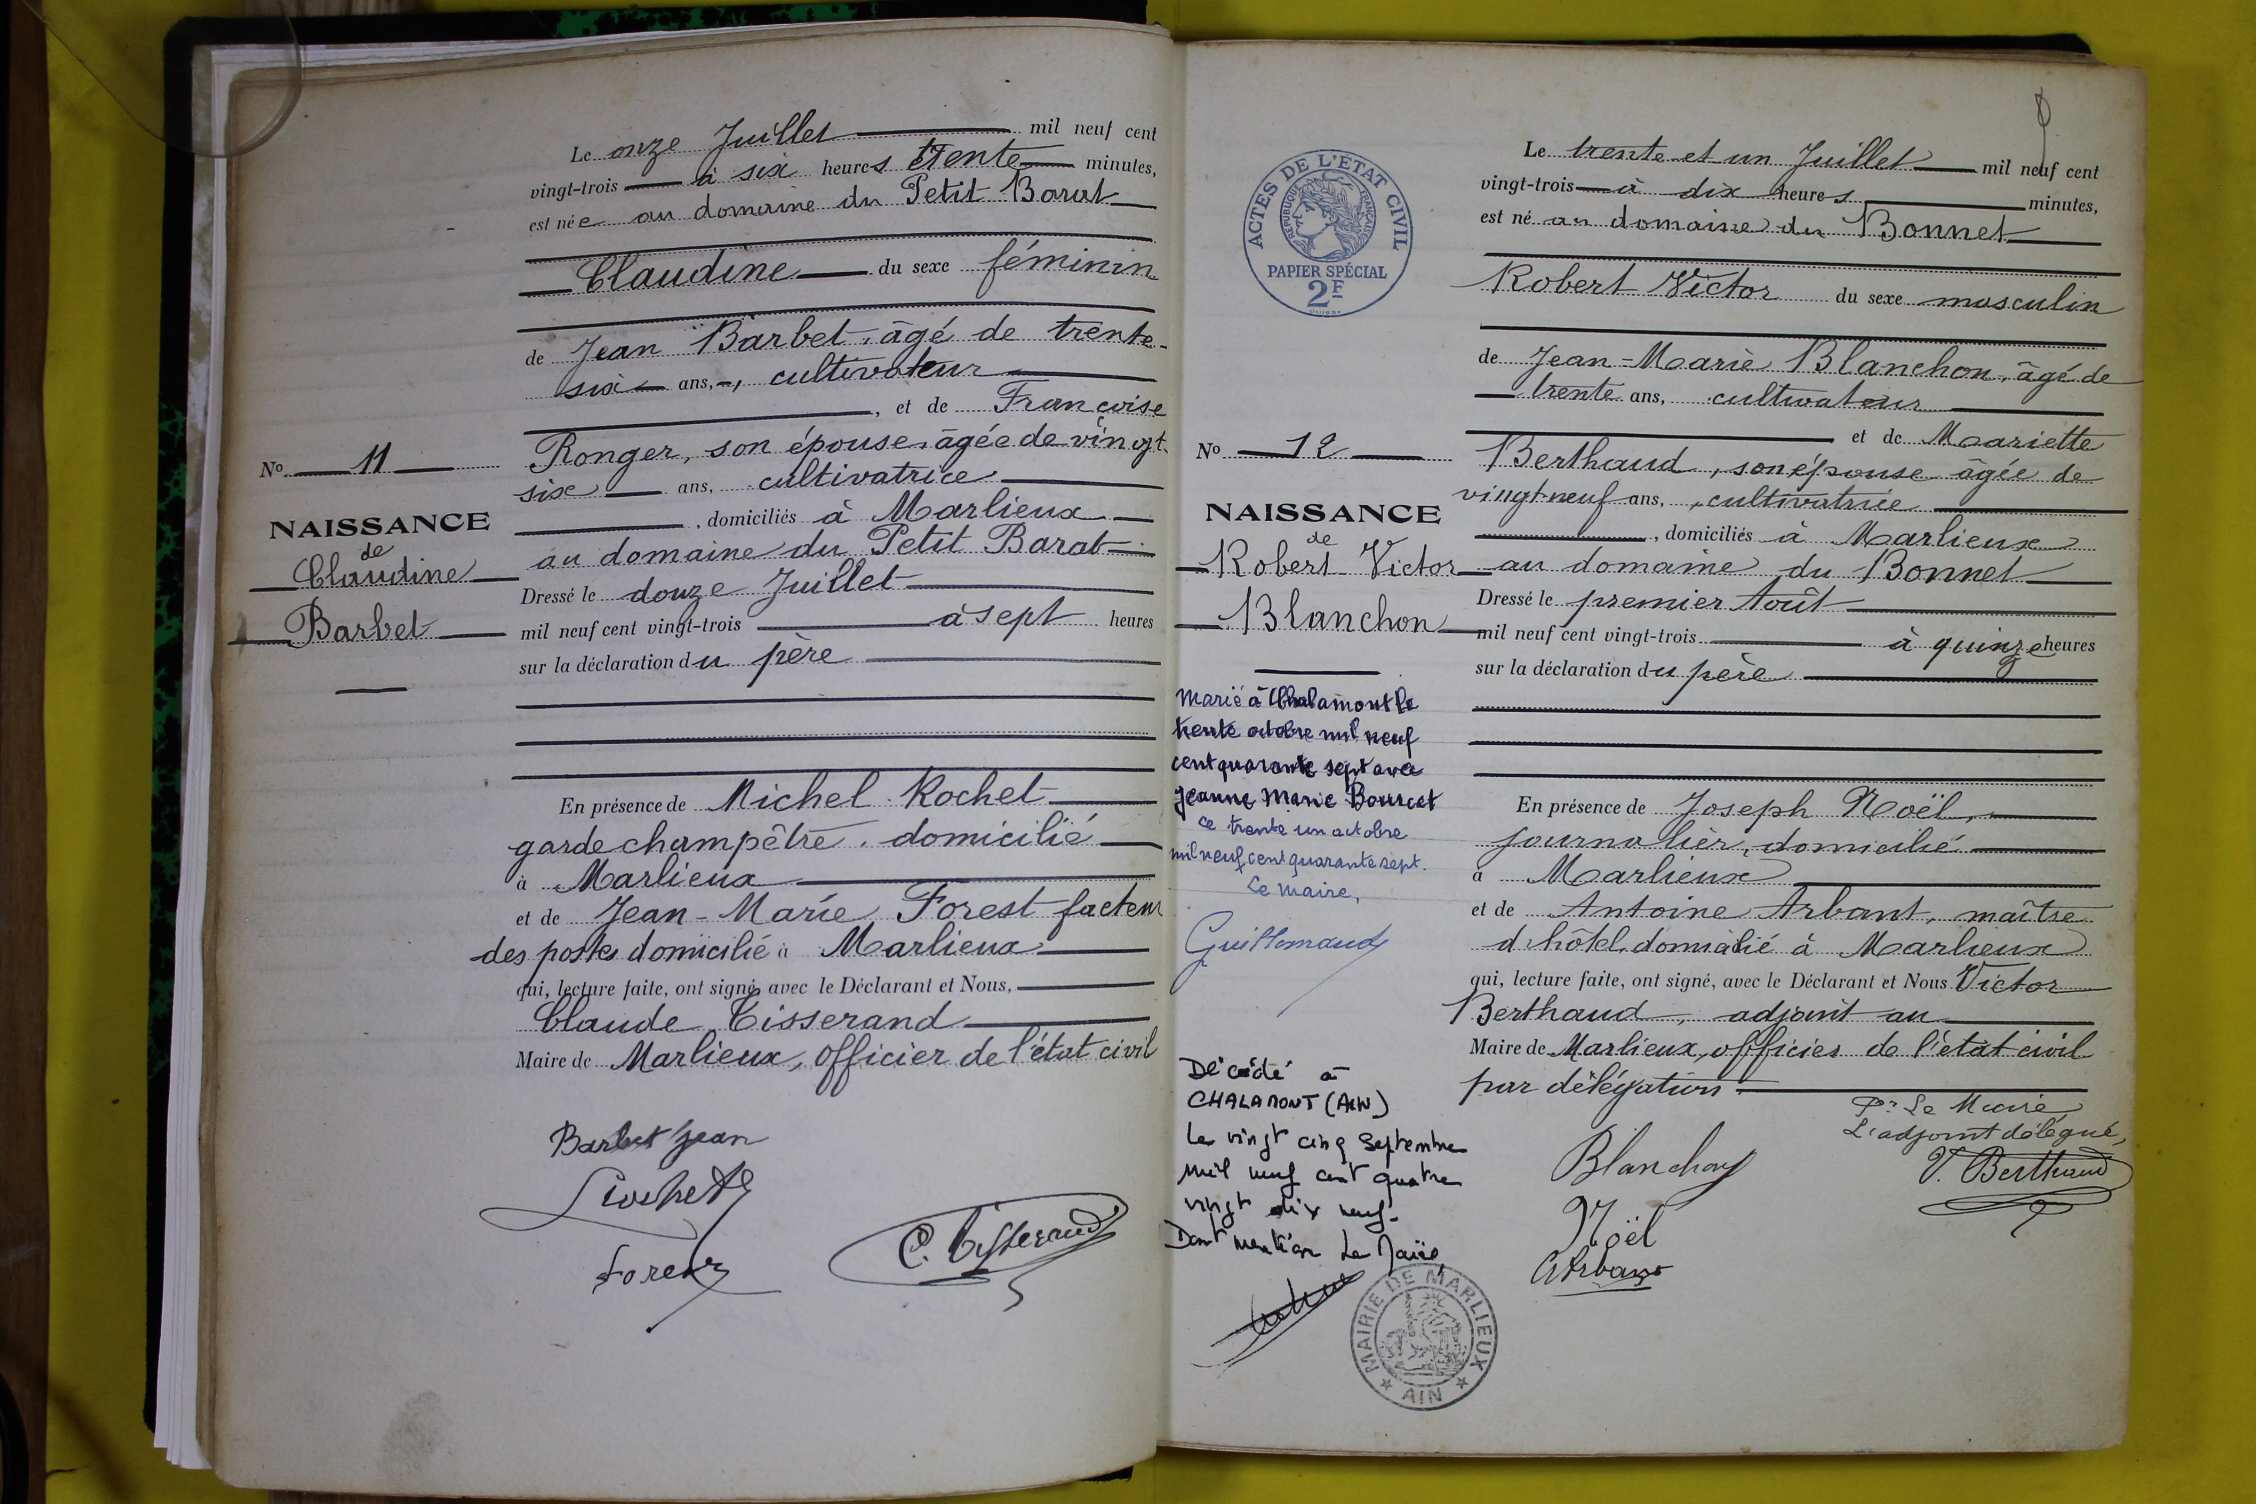 Le onze Juillet mil neuf cent
vingt-trois à six heures trente minutes,
est née au domaine du Petit Barat
Claudine du sexe féminin
de Jean Barbet, âgé de trente-
six ans, cultivateur
, et de Françoise
Ronger, son épouse, âgée de vingt-
six ans, cultivatrice
, domiciliés à Marlieux
au domaine du Petit Barat
Dressé le douze Juillet
mil neuf cent vingt-trois à sept heures
sur la déclaration du père
En présence de Michel Rochet
garde champêtre, domicilié
à Marlieux
et de Jean-Marie Forest facteur
des postes domicilié à Marlieux
qui, lecture faite, ont signé, avec le Déclarant et Nous,
Claude Tisserand
Maire de Marlieux, officier de l'état civil
Barbet Jean
Forest
C. Tisserand
No 11
NAISSANCE
de
Claudine
Barbet
ACTES DE L'ÉTAT CIVIL
RÉPUBLIQUE FRANÇAISE
PAPIER SPÉCIAL
2F
No 12
NAISSANCE
de
Robert Victor
Blanchon
Marié à Chalamont le
trente octobre mil neuf
cent quarante sept avec
Jeanne Marie Bourcet
ce trente un octobre
mil neuf cent quarante sept.
Le Maire,
Guillomaud
Décédé à
CHALAMONT (AIN)
Le vingt cinq Septembre
mil neuf cent quatre
vingt dix neuf.
Dont mention Le Maire,
MAIRIE DE MARLIEUX
★ AIN ★
Le trente et un Juillet mil neuf cent
vingt-trois à dix heures minutes,
est né au domaine du Bonnet
Robert Victor du sexe masculin
de Jean-Marie Blanchon, âgé de
trente ans, cultivateur
et de Mariette
Berthaud, son épouse âgée de
vingt-neuf ans, cultivatrice
, domiciliés à Marlieux
au domaine du Bonnet
Dressé le premier Août
mil neuf cent vingt-trois à quinze heures
sur la déclaration du père
En présence de Joseph Noël,
journalier, domicilié
à Marlieux
et de Antoine Arbant, maître
d'hôtel, domicilié à Marlieux
qui, lecture faite, ont signé, avec le Déclarant et Nous Victor
Berthaud, adjoint au
Maire de Marlieux, officier de l'état civil
par délégation
Pr Le Maire
L'adjoint délégué,
V. Berthaud
Blanchon
Noël
Arbant